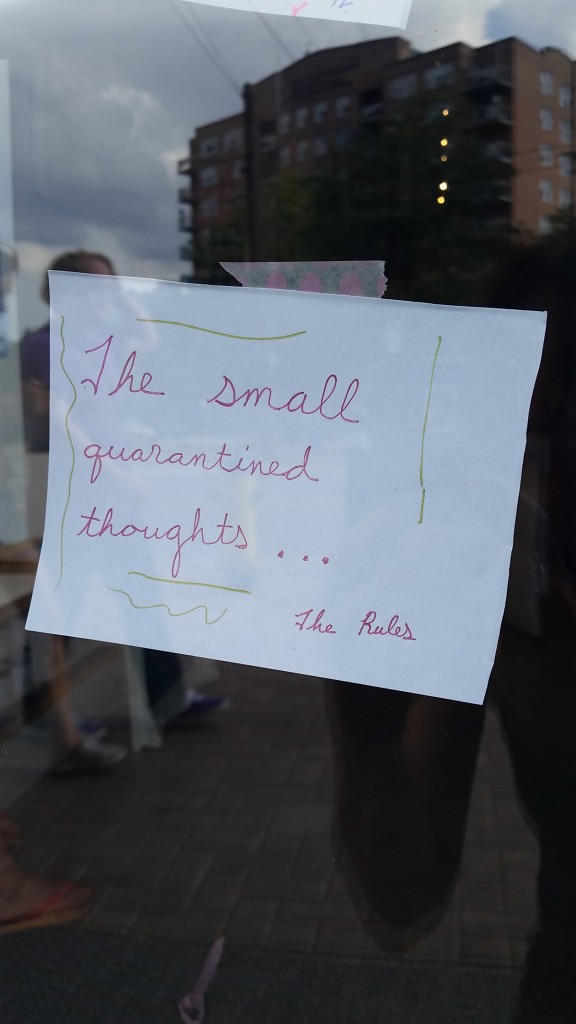 The small
quarantined
thoughts ...
The Rules